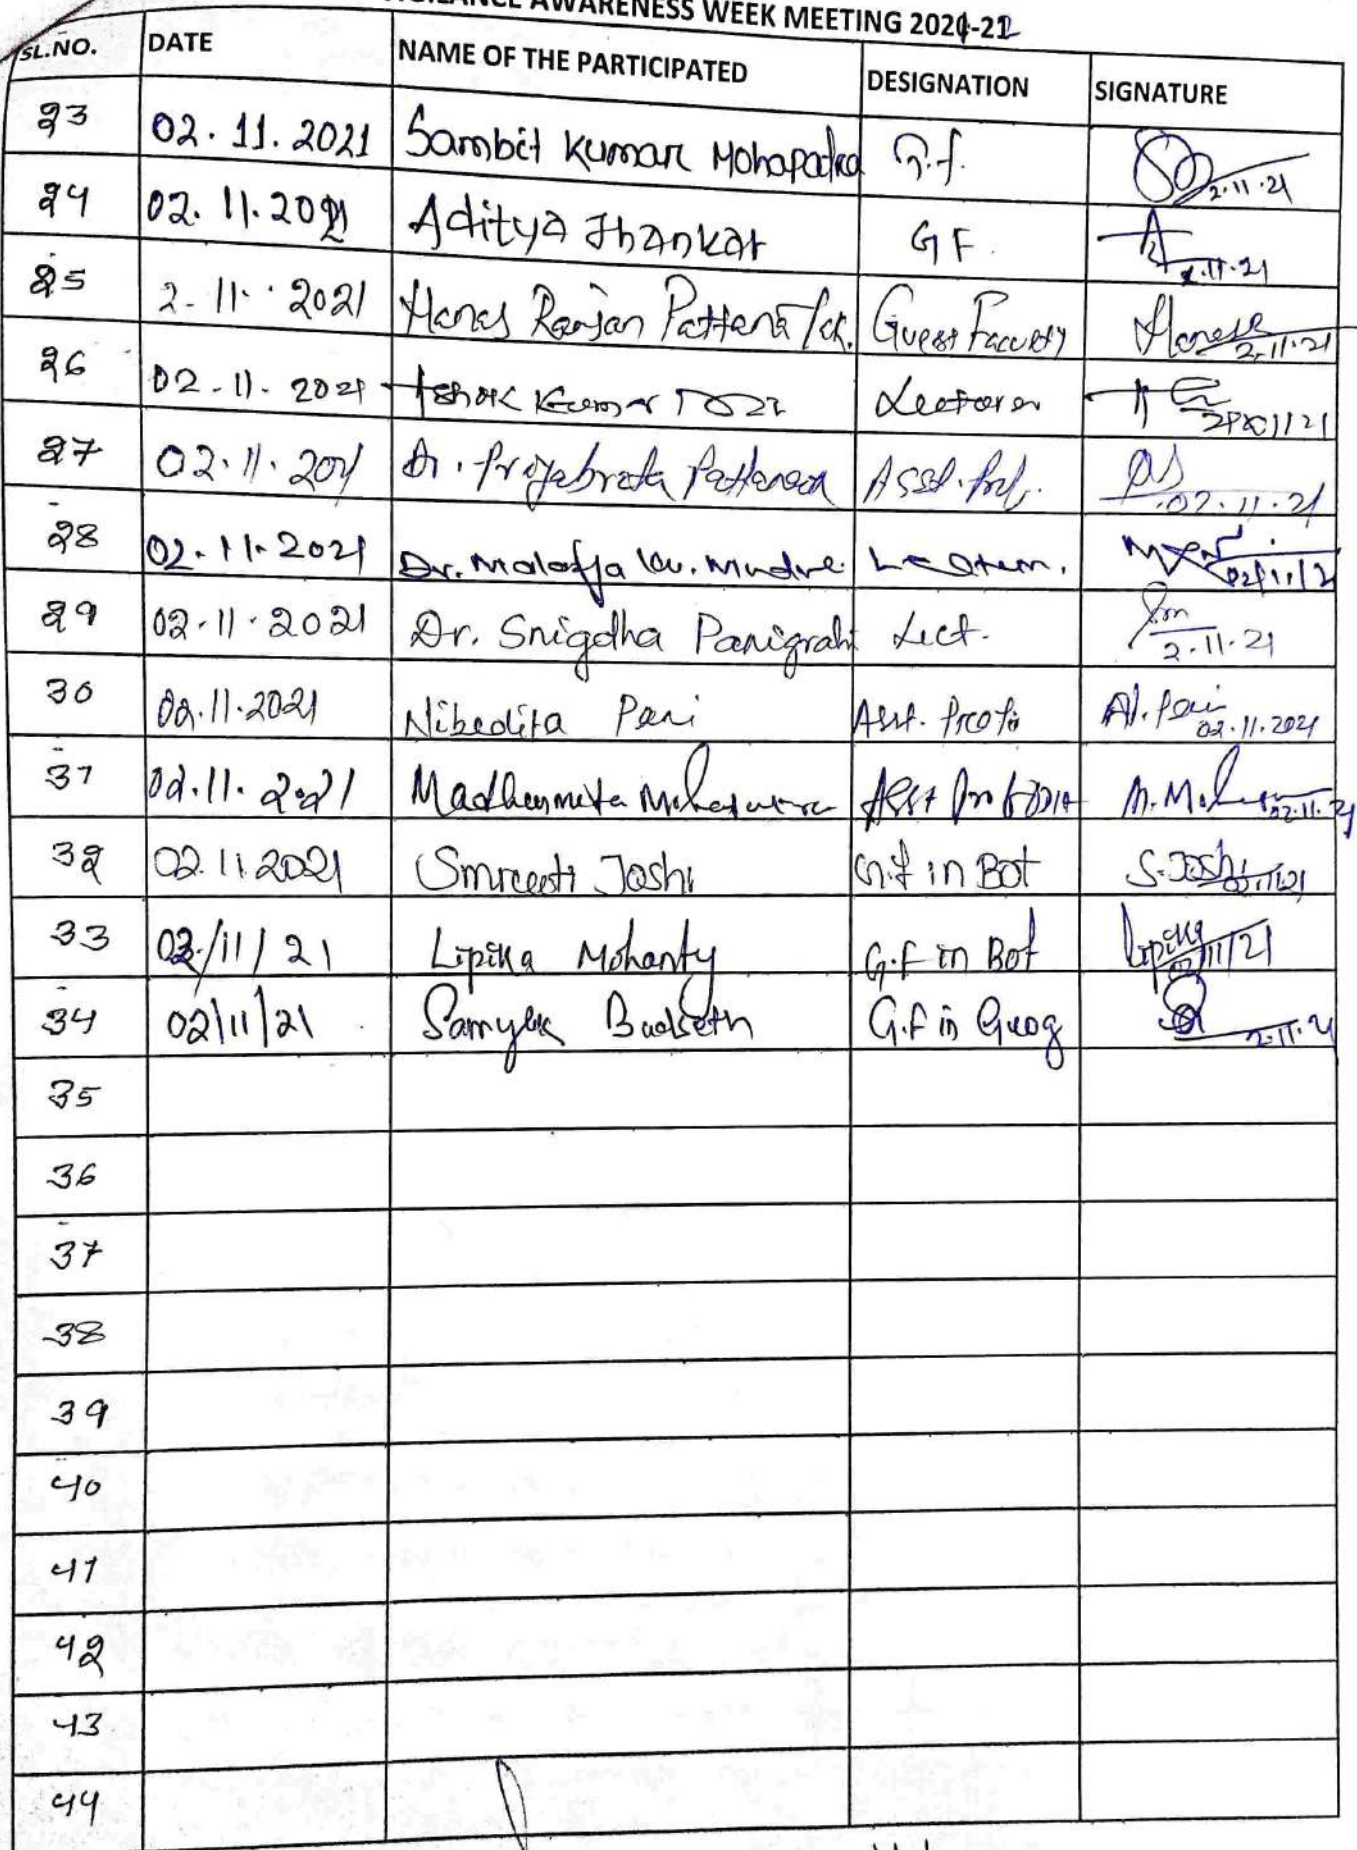 AWARENESS WEEK MEETING 2021-22
SL.NO. DATE NAME OF THE PARTICIPATED DESIGNATION SIGNATURE
23 02.11.2021 Sambit Kumar Mohapatra G.f. 2.11.21
24 02.11.2021 Aditya Jhankar G F. 2.11.21
25 2-11-2021 Manas Ranjan Pattanaik. Guest Faculty Manas 2.11.21
26 02-11-2021 Ashok Kumar Lecturer
27 02.11.2021 Dr. Priyabrata Pattanaik Asst. Prof. 02.11.21
28 02-11-2021 Dr. Ku. Lecturer.
29 02-11-2021 Dr. Snigdha Panigrahi Lect. 2.11.21
30 02.11.2021 Nibedita Pani Asst. Prof. N. Pani 02.11.2021
31 02.11.2021 Madhusmita Asst Professor 02.11.21
32 02.11.2021 Smreeti Joshi G.f in Bot S. Joshi 02.11.21
33 02/11/21 Lipika Mohanty G.F in Bot Lipika 02/11/21
34 02/11/21 G.F in Geog 2.11.21
35
36
37
38
39
40
41
42
43
44